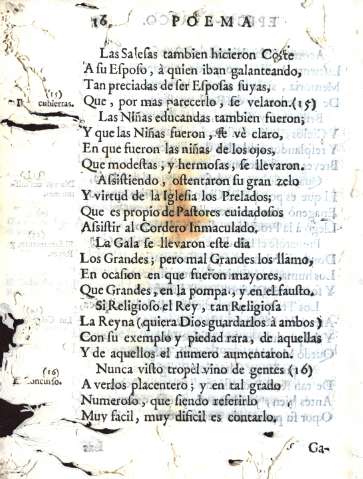 16. POEMA
Las Salesas tambien hicieron Coste
A su Esposo, à quien iban galanteando,
Tan preciadas de ser Esposas suyas,
Que, por mas parecerlo, se velaron.(15)
(15)
cubiertas.
Las Niñas educandas tambien fueron;
Y que las Niñas fueron, se vè claro,
En que fueron las niñas de los ojos,
Que modestas, y hermosas, se llevaron.
Assistiendo, ostentaron su gran zelo
Y virtud de la Iglesia los Prelados;
Que es propio de Pastores cuidadosos
Assistir al Cordero Inmaculado.
La Gala se llevaron este dia
Los Grandes; pero mal Grandes los llamo,
En ocasion en que fueron mayores,
Que Grandes, en la pompa, y en el fausto.
Si Religioso el Rey, tan Religiosa
La Reyna (quiera Dios guardarlos à ambos)
Con su exemplo y piedad rara, de aquellas
Y de aquellos el numero aumentaron.
Nunca visto tropèl vino de gentes (16)
(16)
A verlos placentero; y en tal grado
Numeroso, que siendo referirlo
Muy facil, muy dificil es contarlo.
Ga-